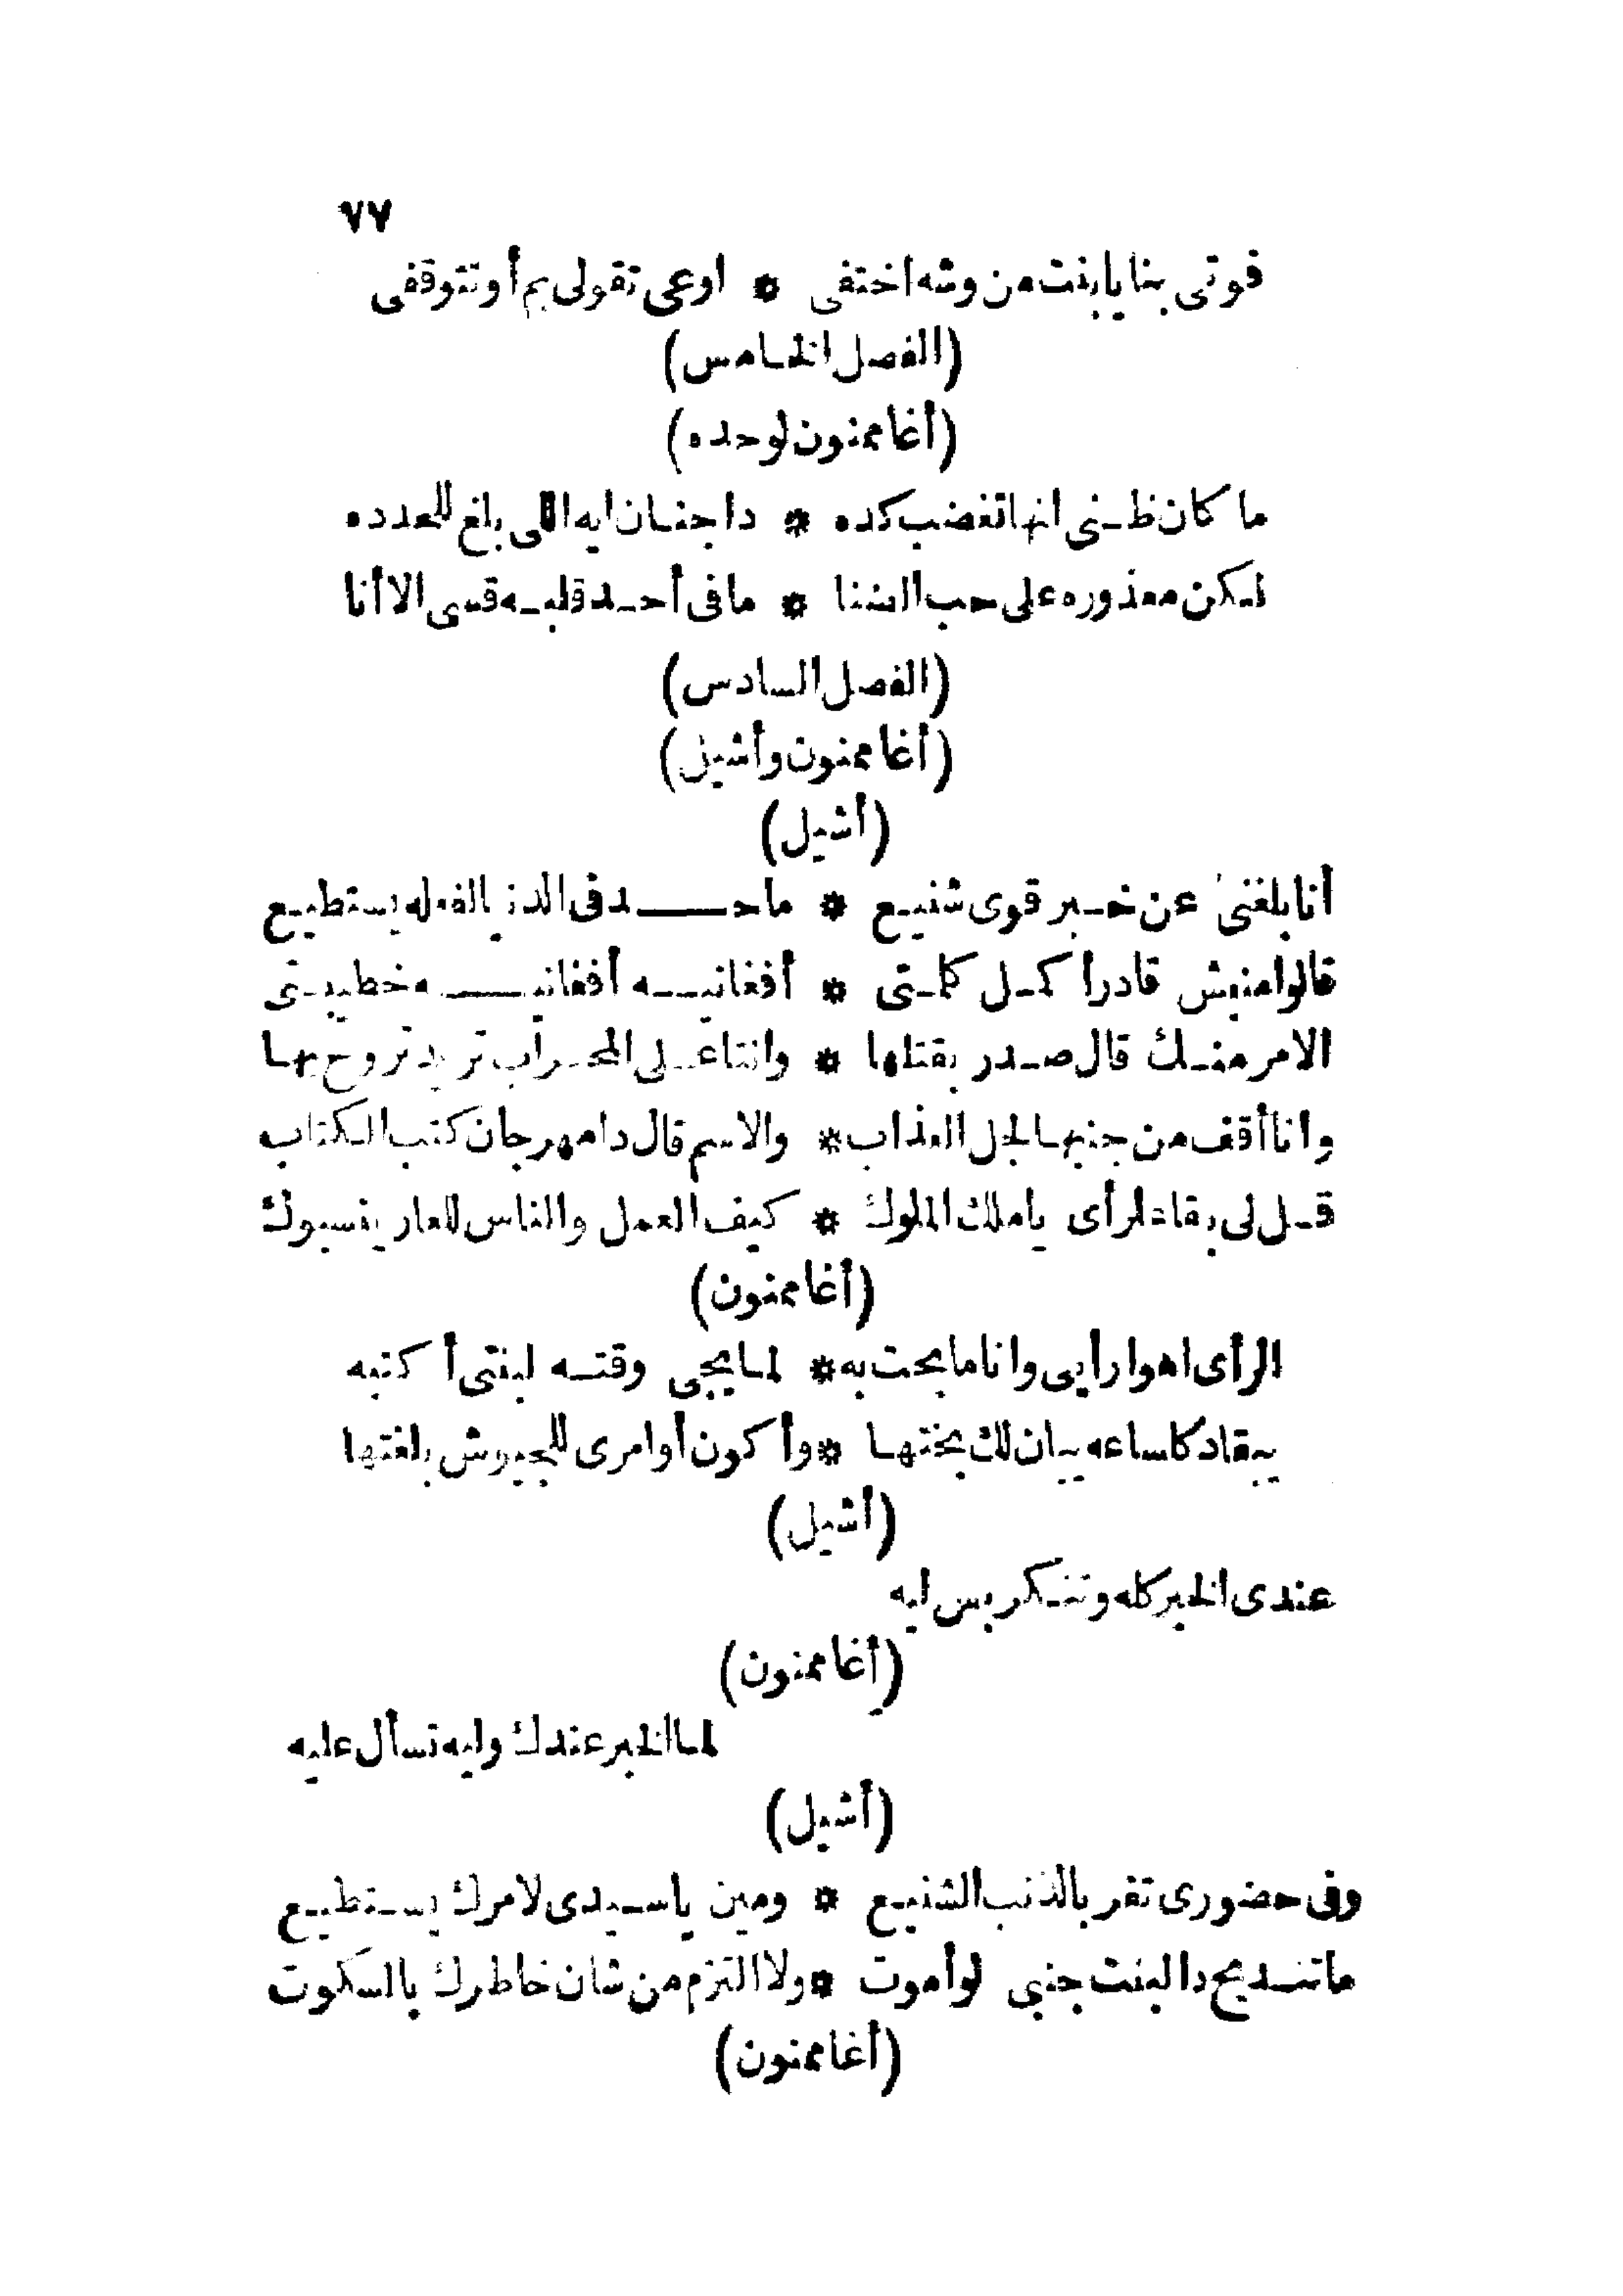 ٧٧
فوتى بنا يا بنت من وشه اختفى * اوعى تقولى بم أو تتوقفى
(الفصل الخامس)
(أغاممنون لوحده)
ما كان ظنى انها تغضب كده * دا جنان ايه اللى بلغ للعدده
لكن معذوره على حب الضنا * ما فى أحد قلبه قسى الا أنا
(الفصل السادس)
(أغاممنون وأشيل)
(أشيل)
أنا بلغنى عن خبر قوى شنيع * ما حد فى الدنيا لفعله يستطيع
قالوا منيش قادر أكمل كلمتى * أفغانيه أفغانيه خطيبتى
الامر منك قال صدر بقتلها * وانتا على المحراب تريد تروح بها
وانا أقف من جنبها لجل العذاب * والاسم قال دا مهرجان كتب الكتاب
قل لى بقا الرأى يا ملك الملوك * كيف العمل والناس للعار ينسبوك
(أغاممنون)
الرأى اهوا رأيى وانا ما بحت به * لما يجى وقته لبنتى أكتبه
يبقا دكا ساعه يبان لك بختها * وأكون أوامرى للجيوش بلغتها
(أشيل)
عندى الخبر كله وتنكر بس ليه
(أغاممنون)
لما الخبر عندك وليه تسأل عليه
(أشيل)
وفى حضورى تقر بالذنب الشنيع * ومين يا سيدى لامرك يستطيع
ما تندبح دا البنت جنبى لو أموت * ولا التزم من شان خاطرك بالسكوت
(أغاممنون)